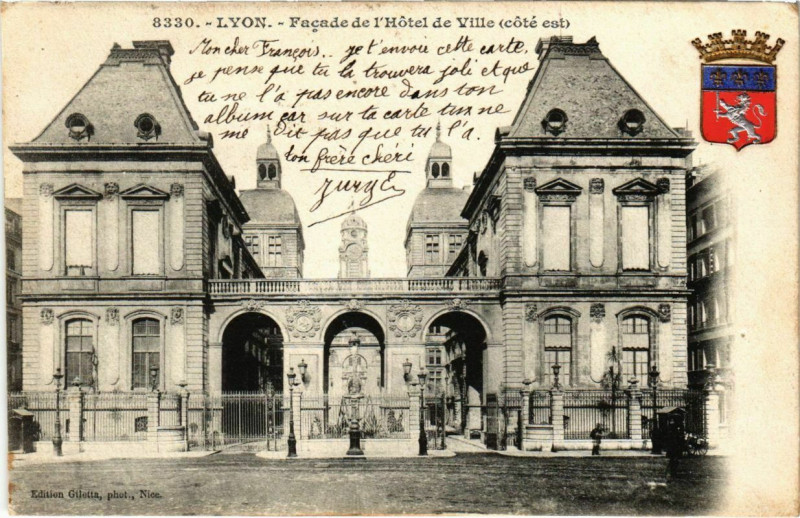 8330. - LYON. - Façade de l'Hôtel de Ville (côté est)
Mon cher François.. je t'envoie cette carte.
je pense que tu la trouvera joli et que
tu ne l'a pas encore dans ton
album car sur ta carte tu ne
me dit pas que tu l'a.
ton frère chéri
Edition Giletta, phot., Nice.